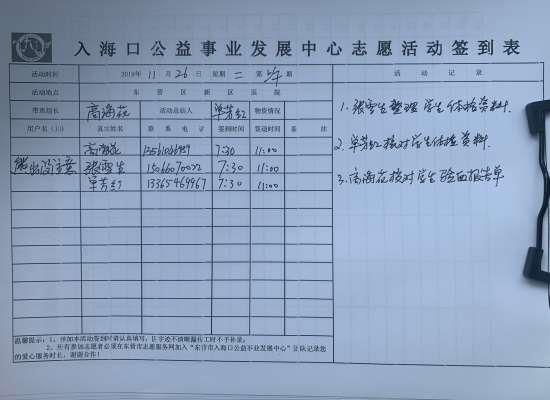 入海口公益事业发展中心志愿活动签到表
活动时间 2019年 11月 26日 星期 二 第 期
活动地点 东营区新区医院
带班组长 高海花 活动总结人 单芳红 物资情况
用户名 真实姓名 联系电话 签到时间 签退时间 备注
高海花 7:30 11:00
张雪生 15066670022 7:30 11:00
单芳红 13365469967 7:30 11:00
温馨提示：1、参加本活动签到时请认真填写，因字迹不清晰漏传工时不予补录；
2、所有参加志愿者必须在东营市志愿服务网加入“东营市入海口公益事业发展中心”公队记录您
的爱心服务时长，谢谢合作！
活动记录
1. 张雪生整理学生体检资料.
2. 单芳红核对学生体检资料.
3. 高海花核对学生验血报告单